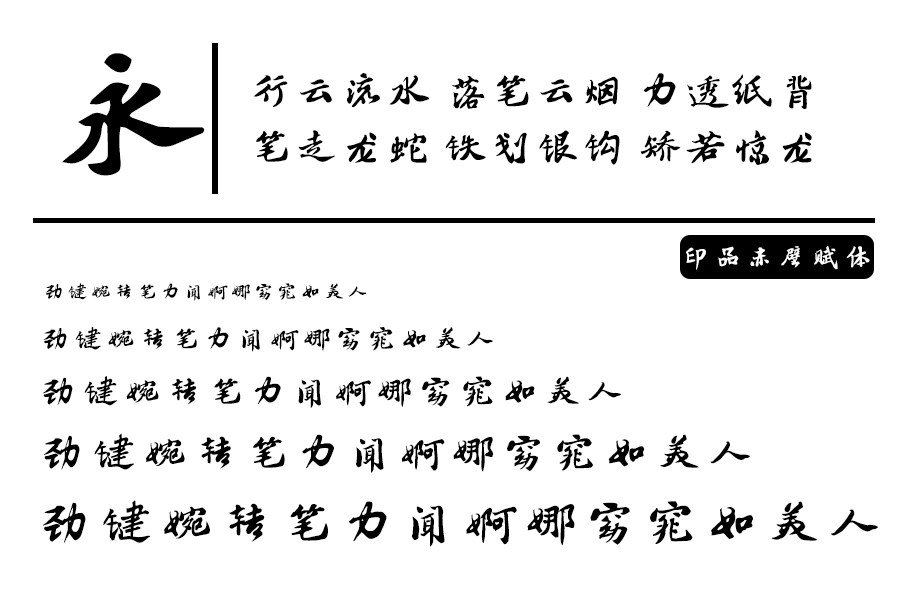 永
行云流水 落笔云烟 力透纸背
笔走龙蛇 铁划银钩 矫若惊龙
印品赤壁赋体
劲健婉转笔力闻婀娜窈窕如美人
劲健婉转笔力闻婀娜窈窕如美人
劲健婉转笔力闻婀娜窈窕如美人
劲健婉转笔力闻婀娜窈窕如美人
劲健婉转笔力闻婀娜窈窕如美人